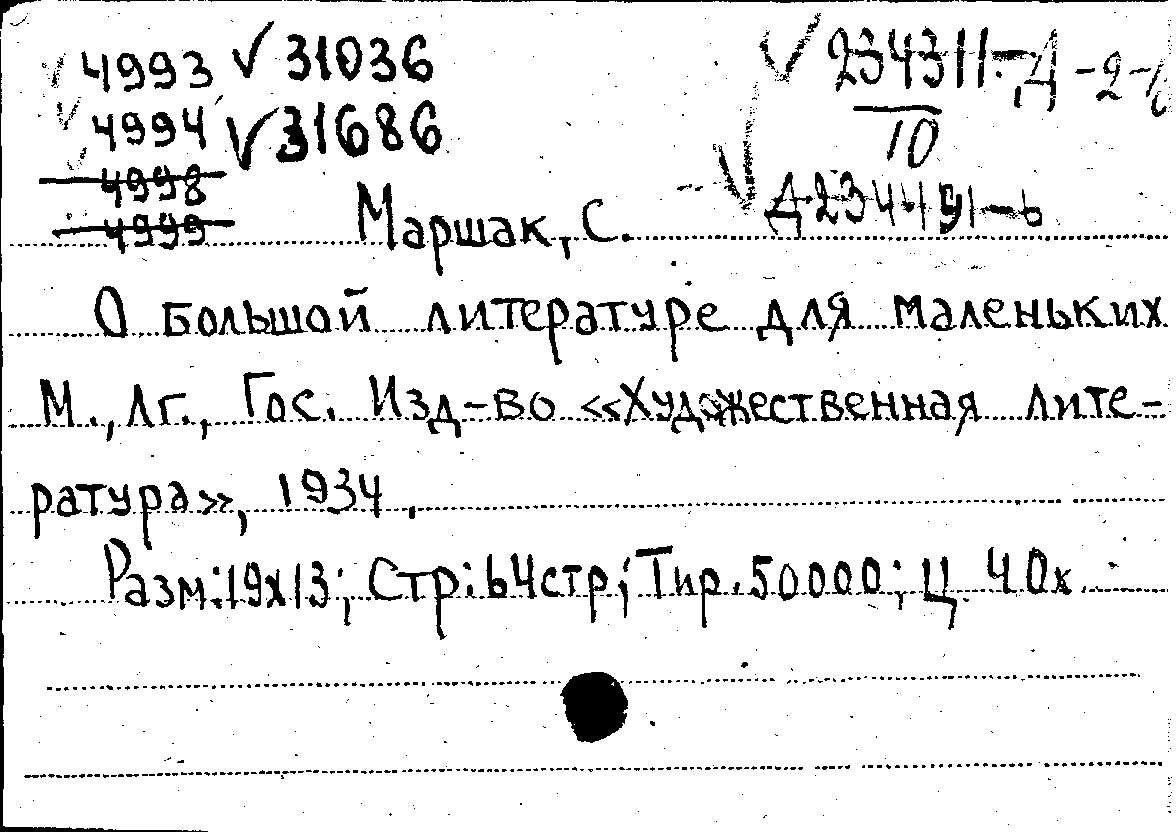 4993 31036
4994 31686
4998
4999
234311-Д-2-
10
Д-234491-b
Маршак, С.
О большой литературе для маленьких
М., Лг., Гос. Изд-во «Художественная лите-
ратура», 1934.
Разм:19x13; Стр:64стр; Тир.50000; Ц. 40к.